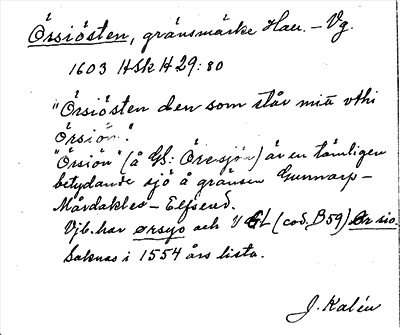 Örsiösten, gränsmärke Hall. – Vg.
1603 HSk H 29:80
"Örsiösten den som står mitt vthi
Örsiön."
"Örsiön" (å GS: Öresjön) är en tämligen
betydande sjö å gränsen Gunnarp –
Mårdaklev – Elfsered.
Vjb. har Ørsyo och (cod. B 59) Ør sio.
Saknas i 1554 års lista.
J. Kalén